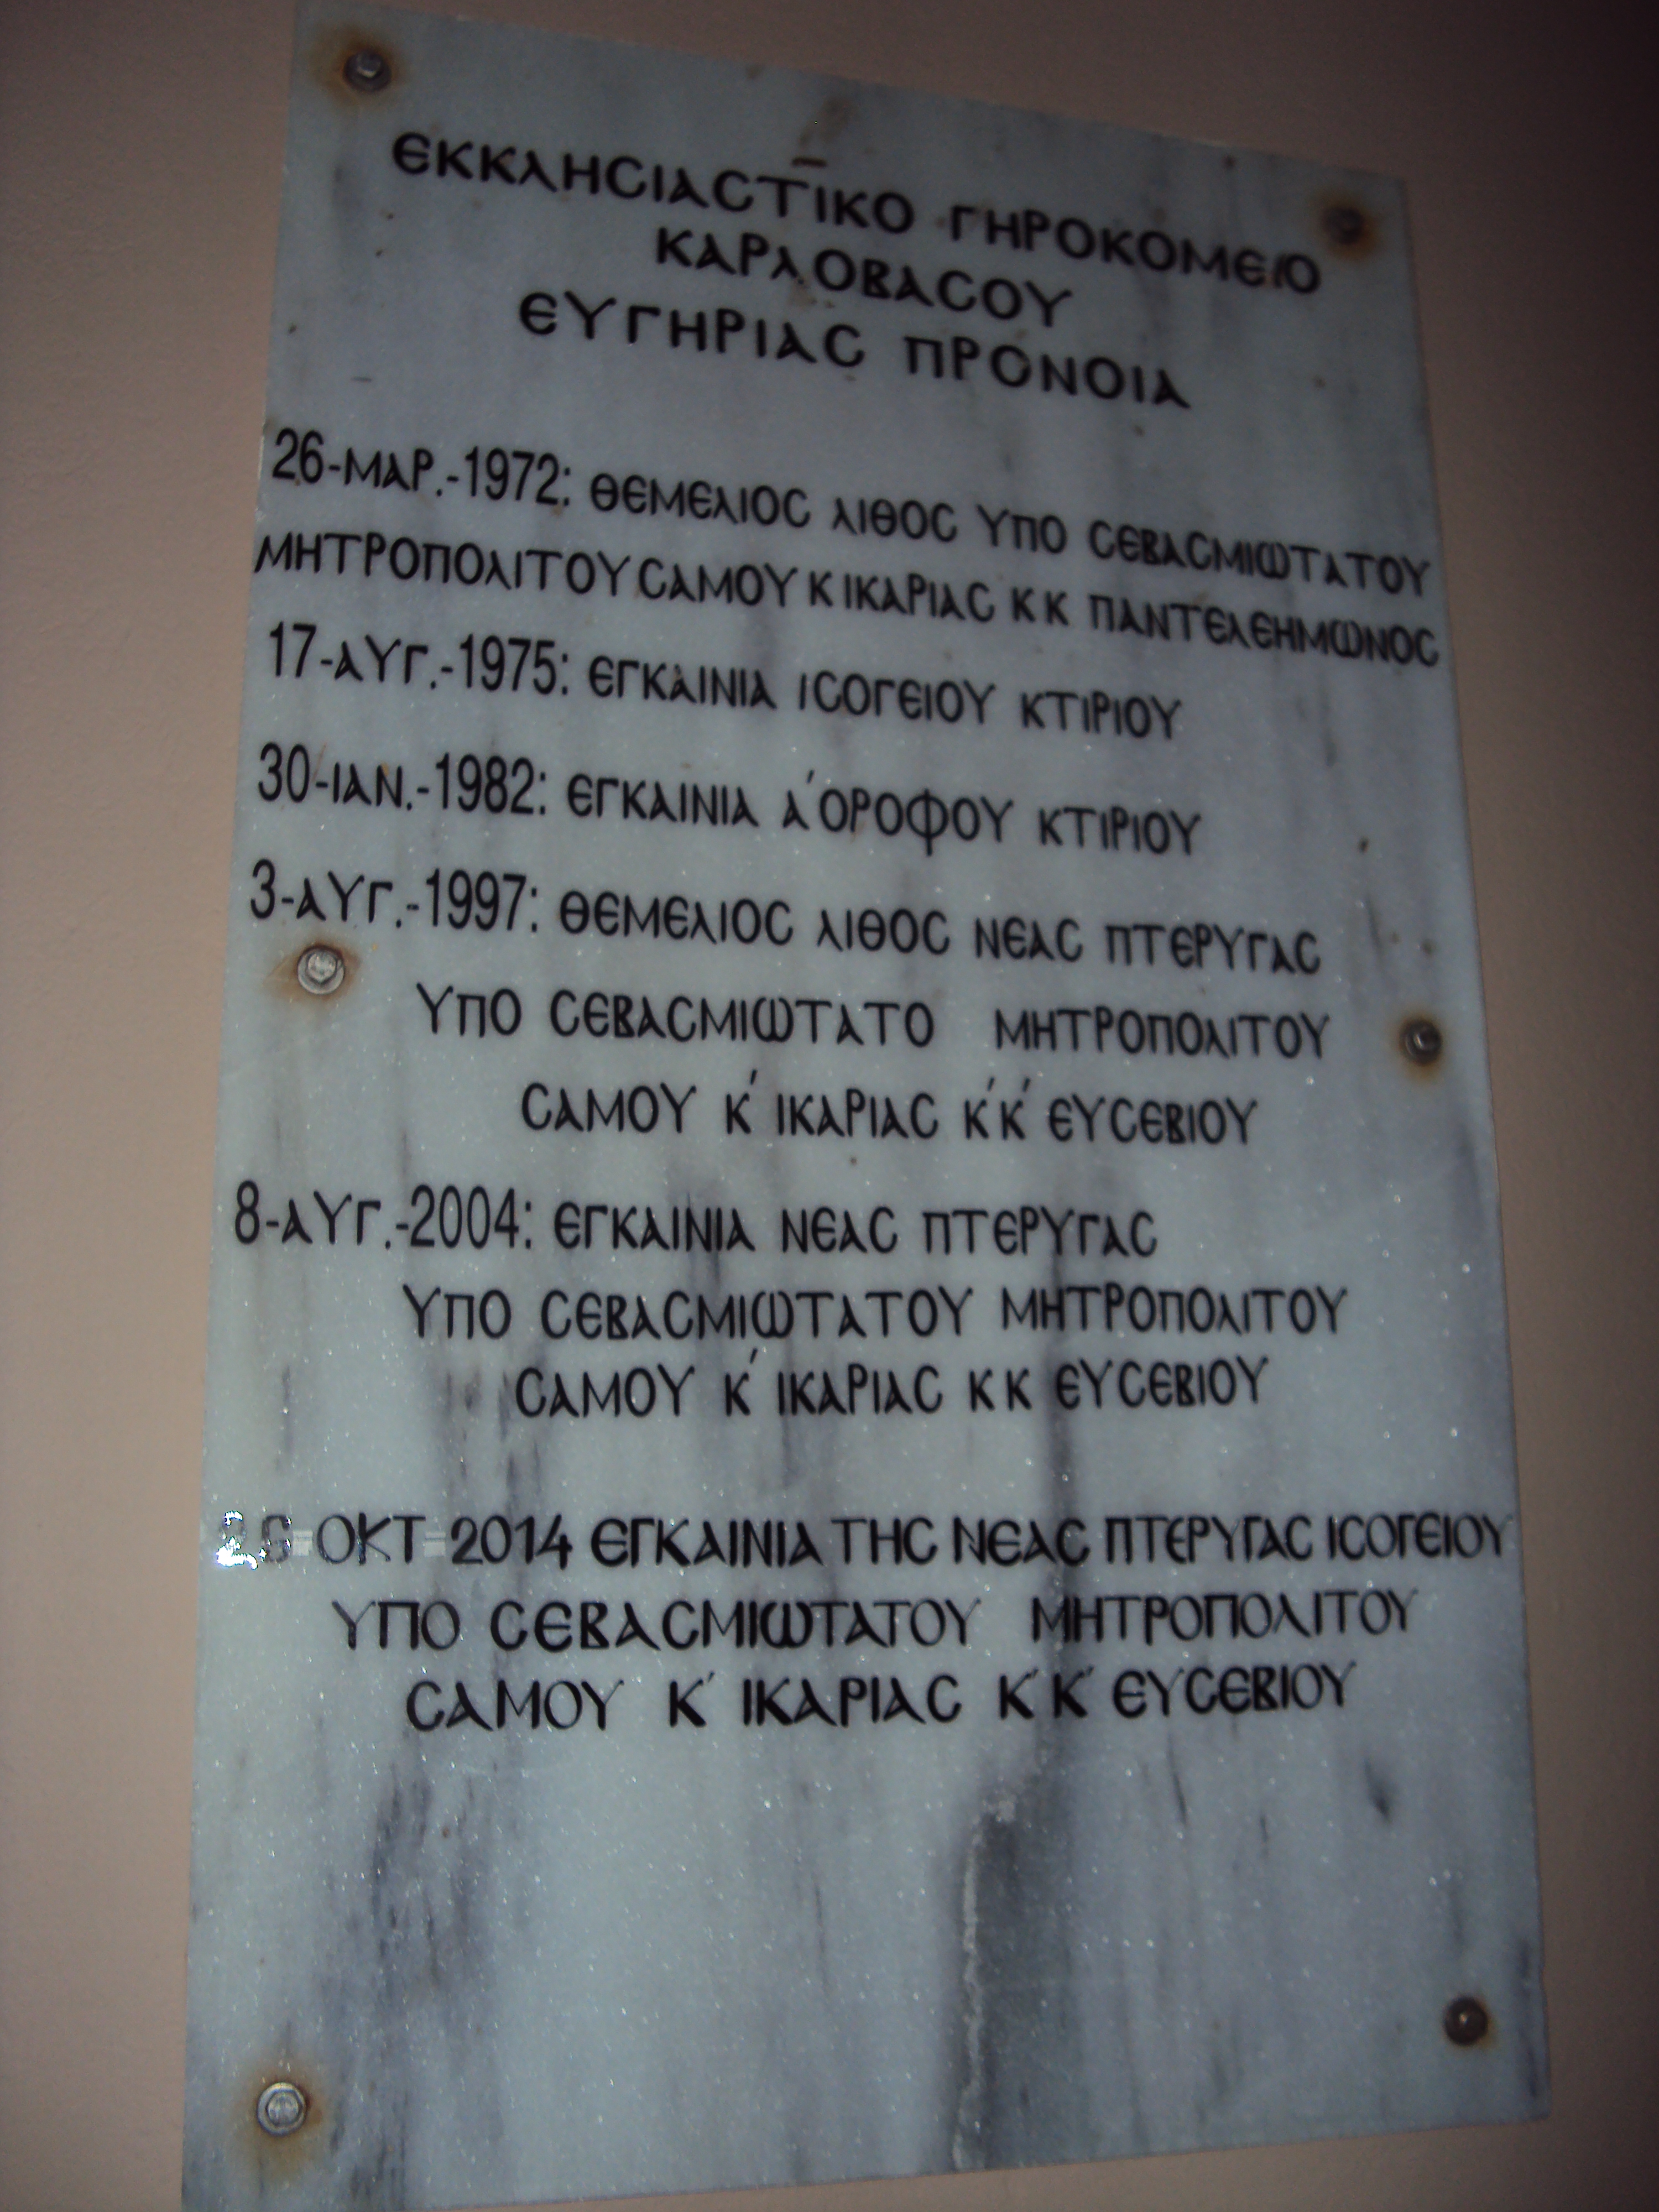 ΕΚΚΛΗCΙΑCΤΙΚΟ ΓΗΡΟΚΟΜΕΙΟ
ΚΑΡΛΟΒΑCΟΥ
ΕΥΓΗΡΙΑC ΠΡΟΝΟΙΑ
26-ΜΑΡ.-1972: ΘΕΜΕΛΙΟC ΛΙΘΟC ΥΠΟ CΕΒΑCΜΙΩΤΑΤΟΥ
ΜΗΤΡΟΠΟΛΙΤΟΥ CΑΜΟΥ Κ ΙΚΑΡΙΑC Κ Κ ΠΑΝΤΕΛΕΗΜΩΝΟC
17-ΑΥΓ.-1975: ΕΓΚΑΙΝΙΑ ΙCΟΓΕΙΟΥ ΚΤΙΡΙΟΥ
30-ΙΑΝ.-1982: ΕΓΚΑΙΝΙΑ Α΄ΟΡΟΦΟΥ ΚΤΙΡΙΟΥ
3-ΑΥΓ.-1997: ΘΕΜΕΛΙΟC ΛΙΘΟC ΝΕΑC ΠΤΕΡΥΓΑC
ΥΠΟ CΕΒΑCΜΙΩΤΑΤΟ ΜΗΤΡΟΠΟΛΙΤΟΥ
CΑΜΟΥ Κ΄ ΙΚΑΡΙΑC Κ΄Κ΄ ΕΥCΕΒΙΟΥ
8-ΑΥΓ.-2004: ΕΓΚΑΙΝΙΑ ΝΕΑC ΠΤΕΡΥΓΑC
ΥΠΟ CΕΒΑCΜΙΩΤΑΤΟΥ ΜΗΤΡΟΠΟΛΙΤΟΥ
CΑΜΟΥ Κ΄ ΙΚΑΡΙΑC Κ Κ ΕΥCΕΒΙΟΥ
ΟΚΤ-2014 ΕΓΚΑΙΝΙΑ ΤΗC ΝΕΑC ΠΤΕΡΥΓΑC ΙCΟΓΕΙΟΥ
ΥΠΟ CΕΒΑCΜΙΩΤΑΤΟΥ ΜΗΤΡΟΠΟΛΙΤΟΥ
CΑΜΟΥ Κ΄ ΙΚΑΡΙΑC Κ΄Κ΄ ΕΥCΕΒΙΟΥ